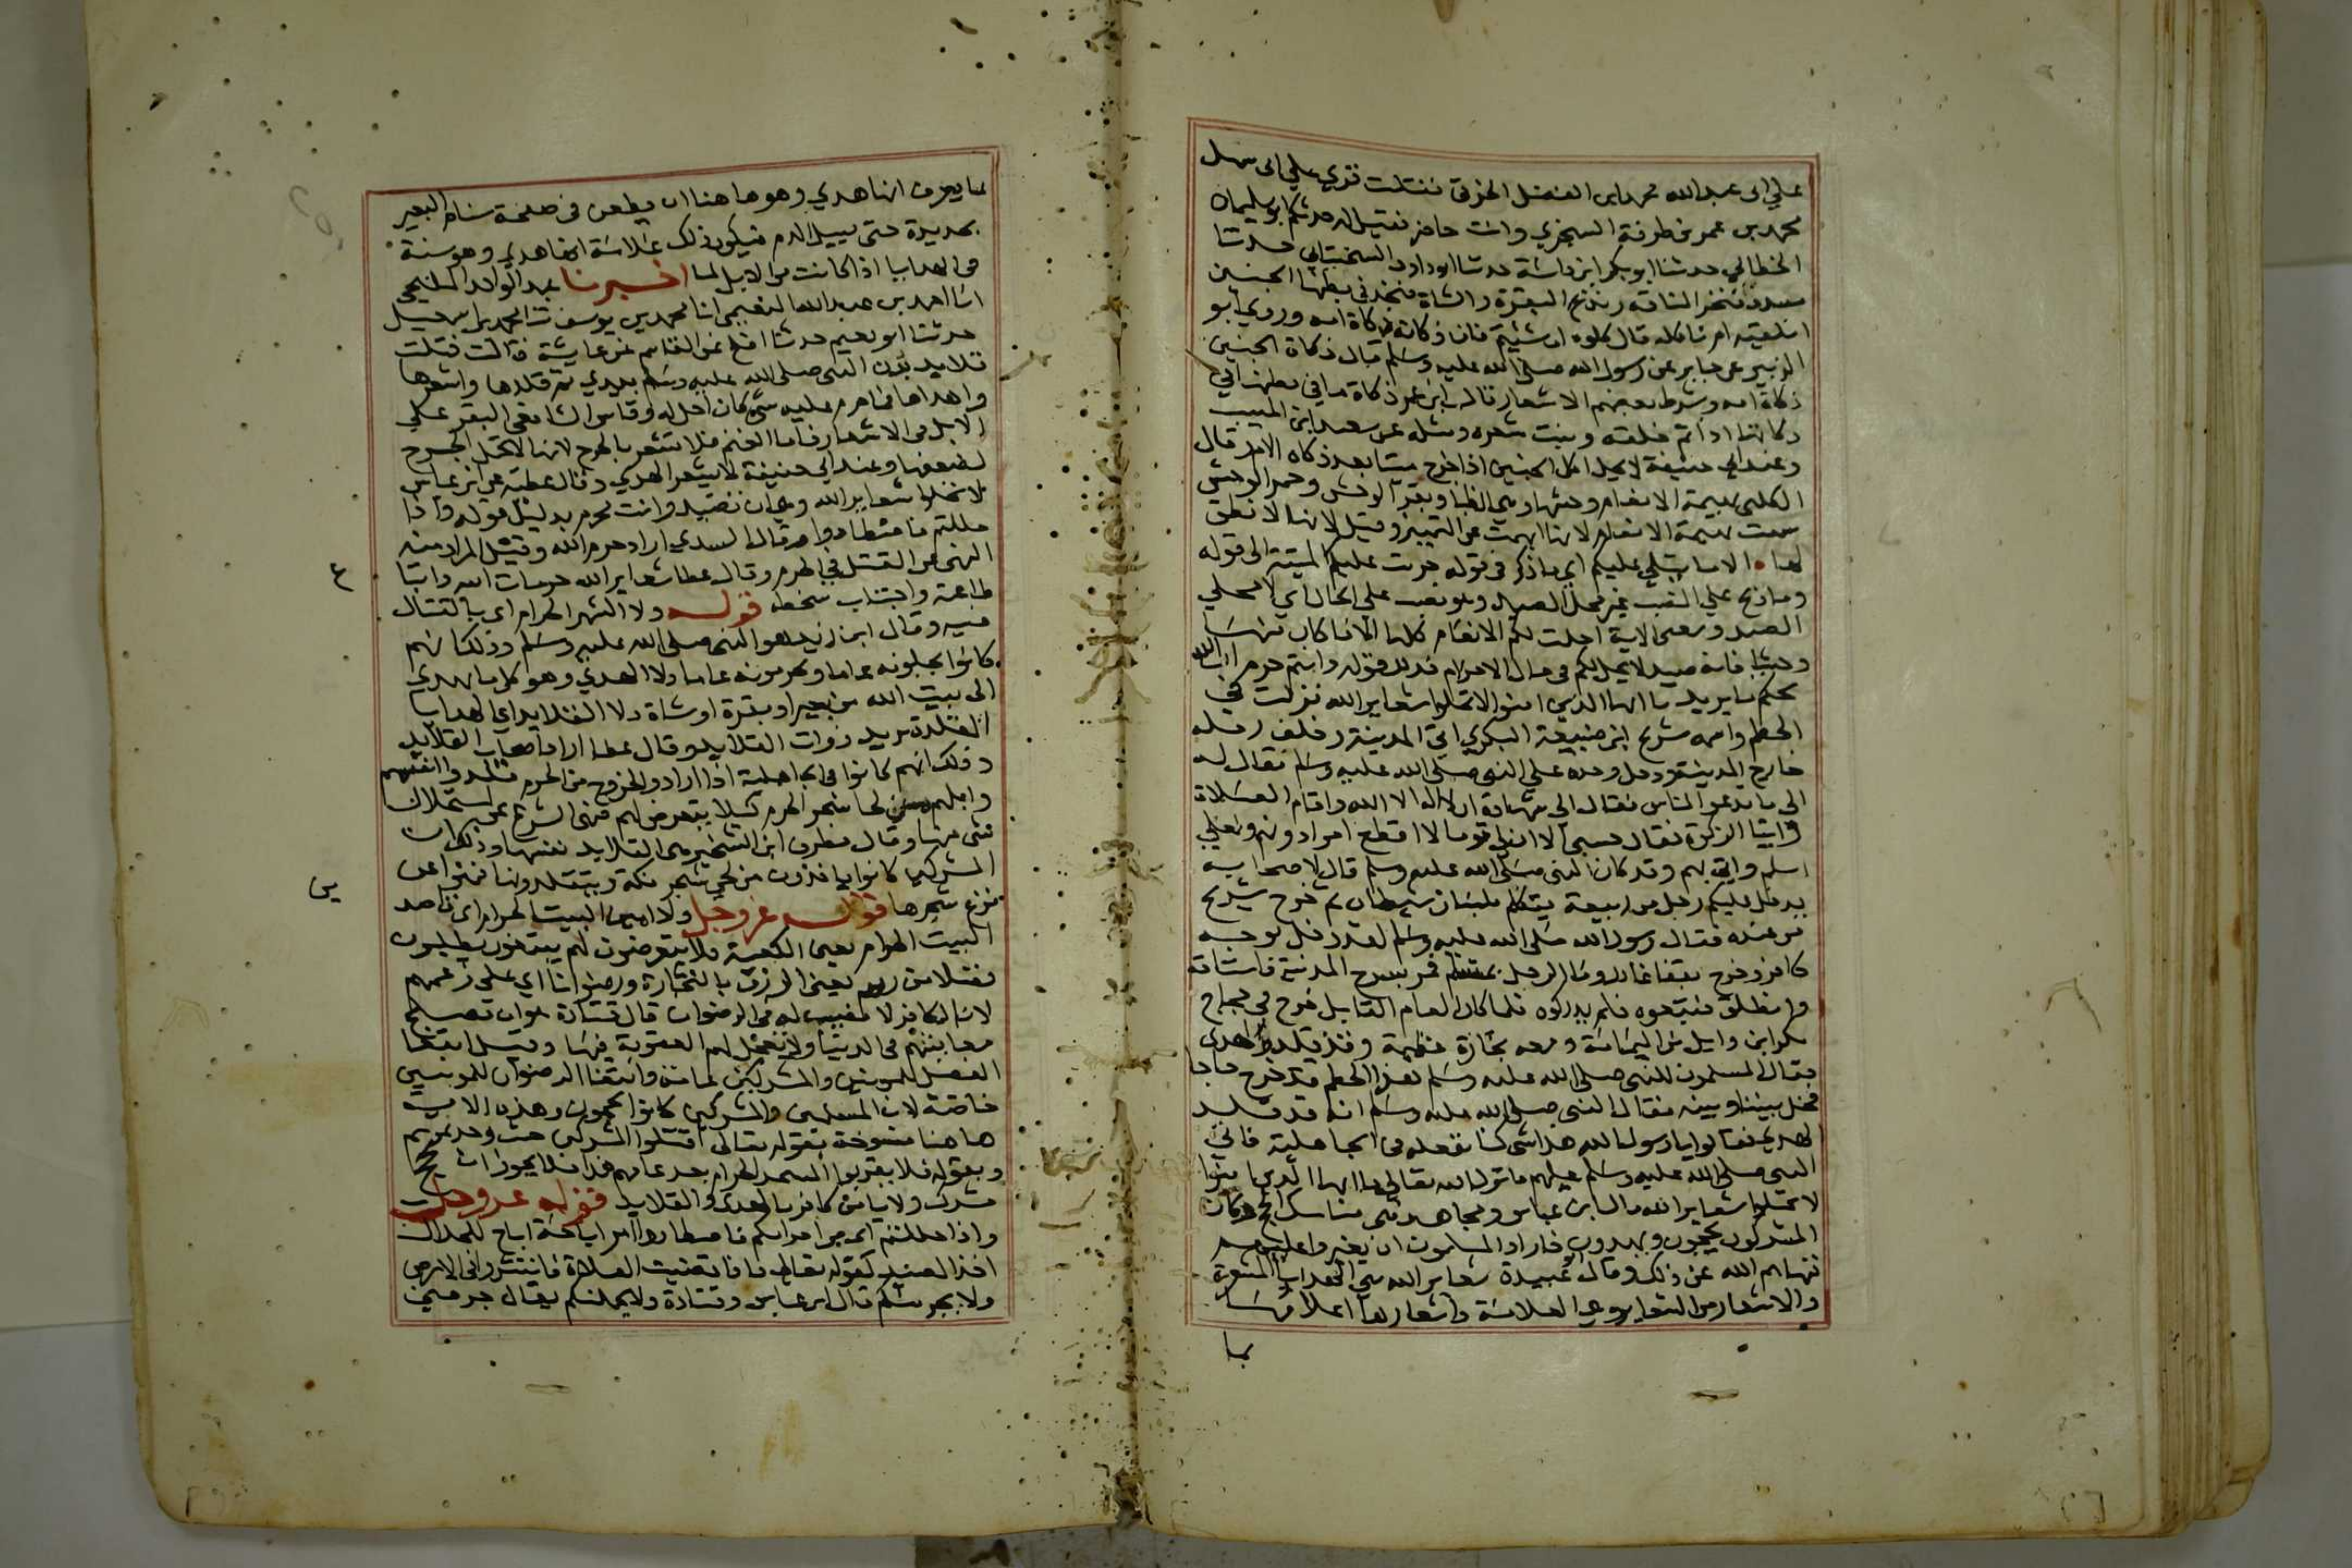 علي ابى عبد الله محمد ابن الفضل الخرقى فقلت قرى علي ابى سهل
محمد بن عمر بن طرفة السجزي وانت حاضر فقيل له حدثكم ابو سليمان
الخطابي حدثنا ابو بكر ابن داسة حدثنا ابو داود السجستاني حدثنا
مسدد ننحر الناقه ونذبح البقرة والشاة فنجد في بطنها الجنين
انلقيه ام ناكله قال كلوه ان شئتم فان ذكاته ذكاة امه وروي ابو
الزبير عن جابر عن رسول الله صلى الله عليه وسلم قال ذكاة الجنين
ذكاة امه وشرط بعضهم الاشعار قال ابن عمر ذكاة ما في بطنها في
ذكاتها اذا تم خلقه ونبت شعره ومثله عن سعيد ابن المسيب
وعند ابي حنيفة لا يحل اكل الجنين اذا خرج ميتا بعد ذكاة الام قال
الكلبى بهيمة الانعام وحشها وهي الظبا وبقر الوحش وحمر الوحش
سميت بهيمة الانعام لانها ابهمت عن التمييز وقيل لانها لا نطق
لها الا ما يتلى عليكم اي ما ذكر في قوله حرمت عليكم الميتة الى قوله
وما ذبح علي النصب غير محلي الصيد وهو نصب علي الحال اي لا محلي
الصيد ومعنى الاية احلت لكم الانعام كلها الا ما كان منها
وحشيا فانه صيد لا يحل لكم فى حال الاحرام فذلك قوله وانتم حرم ان الله
يحكم ما يريد يا ايها الذين امنوا لا تحلوا شعاير الله نزلت في
الحطم واسمه شريح ابن ضبيعة البكري اتى المدينة وخلف خيله
خارج المدينة ودخل وحده علي النبي صلى الله عليه وسلم فقال له
الى ما تدعو الناس فقال الي شهادة ان لا اله الا الله واقام الصلاة
وايتا الزكوة فقال حسن الا ان لي قوما لا اقطع امرا دونهم ولعلي
اسلم واتي بهم وقد كان النبي صلى الله عليه وسلم قال لاصحابه
يدخل عليكم رجل من ربيعة يتكلم بلسان شيطان ثم خرج شريح
من عنده فقال رسول الله صلى الله عليه وسلم لقد دخل بوجه
كافر وخرج بقفا غادر وما الرجل بمسلم فمر بسرح المدينة فاستاقه
وانطلق فتبعوه فلم يدركوه فلما كان العام القابل خرج في حجاج
بكر ابن وايل من اليمامة ومعه تجارة عظيمة وقد قلد الهدي
فقال المسلمون للنبي صلى الله عليه وسلم هذا الحطم قد خرج حاجا
فخل بيننا وبينه فقال النبي صلى الله عليه وسلم انه قد قلد
الهدي فقالوا يا رسول الله هذا شى كنا نفعله فى الجاهلية فابي
النبي صلى الله عليه وسلم عليهم فانزل الله تعالى يا ايها الذين امنوا
لا تحلوا شعاير الله قال ابن عباس ومجاهد هى مناسك الحج وكان
المشركون يحجون ويهدون فاراد المسلمون ان يغيروا عليهم
فنهاهم الله عن ذلك وقال ابو عبيدة شعاير الله هي الهدايا المشعرة
والاشعار من الشعار وهي العلامة واشعارها اعلامها
بما
بما يعرف انها هدي وهو ها هنا ان يطعن في صفحة سنام البعير
بحديدة حتى يسيل الدم فيكون ذلك علامة انها هدي وهو سنة
فى الهدايا اذا كانت من الابل لما اخبرنا عبد الواحد المليحي
انا احمد بن عبد الله النعيمي انا محمد بن يوسف ثنا محمد بن اسمعيل
حدثنا ابو نعيم حدثنا افلح عن القاسم عن عايشة قالت فتلت
قلايد بدن النبي صلى الله عليه وسلم بيدي ثم قلدها واشعرها
واهداها فما حرم عليه شى كان احل له وقاس الشافعى البقر علي
الابل فى الاشعار فاما الغنم فلا تشعر بالجرح لانها لا تحتمل الجرح
لضعفها وعند ابي حنيفة لا يشعر الهدي وقال عطية عن ابن عباس
لا تحلوا شعاير الله وهي ان تصيد وانت محرم بدليل قوله واذا
حللتم فاصطادوا وقال السدي اراد حرم الله وقيل المراد منه
النهى عن القتل في الحرم وقال عطا شعاير الله حرمات الله وايتا
طاعته واجتناب سخطه قوله ولا الشهر الحرام اي بالقتال
فيه وقال ابن زيد هو النسي صلى الله عليه وسلم وذلك انهم
كانوا يحلونه عاما ويحرمونه عاما ولا الهدي وهو كل ما يهدي
الى بيت الله من بعير او بقرة او شاة ولا القلايد اي الهدايا
المقلدة يريد ذوات القلايد وقال عطا اراد اصحاب القلايد
وذلك انهم كانوا فى الجاهلية اذا ارادوا الخروج من الحرم قلدوا انفسهم
وابلهم من لحا شجر الحرم كيلا يتعرض لهم فنهى الشرع عن استحلال
شى منها وقال مطرف ابن الشخير هى القلايد نفسها وذلك ان
المشركين كانوا ياخذون من لحى شجر مكة ويتقلدونها فنهوا عن
نزع شجرها قوله عز وجل ولا امين البيت الحرام اى قاصد
البيت الحرام يعني الكعبة فلا يتعرضون لهم يبتغون يطلبون
فضلا من ربهم يعني الرزق بالتجارة ورضوانا اي على زعمهم
لان الكافر لا نصيب له فى الرضوان قال قتادة هو ان يصلح
معايشهم فى الدنيا ولا يعجل لهم العقوبة فيها وقيل ابتغا
الفضل للمومنين والمشركين عامة وابتغا الرضوان للمومنين
خاصة لان المسلمين والمشركين كانوا يحجون وهذه الاية
ها هنا منسوخة بقوله تعالى اقتلوا المشركين حيث وجدتموهم
وبقوله فلا يقربوا المسجد الحرام بعد عامهم هذا فلا يجوز ان يحج
مشرك ولا يامن كافر بالهدي والقلايد قوله عز وجل
واذا حللتم اى من احرامكم فاصطادوا امر اباحة اباح للحلال
اخذ الصيد كقوله تعالى فاذا قضيت الصلاة فانتشروا في الارض
ولا يجرمنكم قال ابن عباس وقتادة ولا يحملنكم يقال جرمني